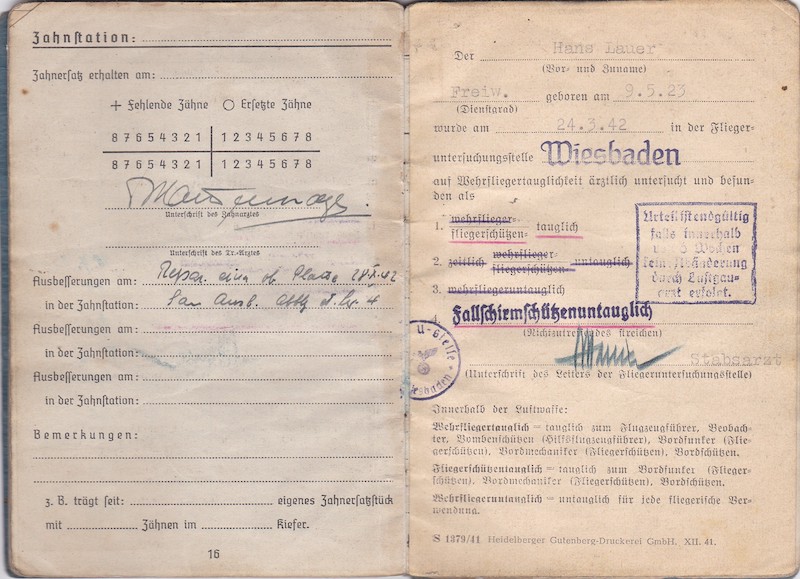 Zahnstation:
Zahnersatz erhalten am:
+ Fehlende Zähne ○ Ersetzte Zähne
8 7 6 5 4 3 2 1 | 1 2 3 4 5 6 7 8
8 7 6 5 4 3 2 1 | 1 2 3 4 5 6 7 8
Unterschrift des Zahnarztes
Unterschrift des Tr.-Arztes
Ausbesserungen am:
in der Zahnstation:
Ausbesserungen am:
in der Zahnstation:
Ausbesserungen am:
in der Zahnstation:
Bemerkungen:
z. B. trägt seit: eigenes Zahnersatzstück
mit Zähnen im Kiefer.
16
Der Hans Lauer
(Vor- und Zuname)
Freiw. geboren am 9.5.23
(Dienstgrad)
wurde am 24.3.42 in der Flieger-
untersuchungsstelle Wiesbaden
auf Wehrfliegertauglichkeit ärztlich untersucht und befun-
den als
1. wehrflieger-
fliegerschützen- tauglich
2. zeitlich wehrflieger-
fliegerschützen- untauglich
3. wehrfliegeruntauglich
4. Fallschirmschützenuntauglich
(Nichtzutreffendes streichen)
Urteil ist endgültig
falls innerhalb
Wochen
kein Abänderung
durch Luftgau-
arzt erfolgt.
U-Stelle
Wiesbaden
Stabsarzt
(Unterschrift des Leiters der Fliegeruntersuchungsstelle)
Innerhalb der Luftwaffe:
Wehrfliegertauglich = tauglich zum Flugzeugführer, Beobach-
ter, Bombenschützen (Hilfsflugzeugführer), Bordfunker (Flie-
gerschützen), Bordmechaniker (Fliegerschützen), Bordschützen.
Fliegerschützentauglich = tauglich zum Bordfunker (Flieger-
schützen), Bordmechaniker (Fliegerschützen), Bordschützen.
Wehrfliegeruntauglich = untauglich für jede fliegerische Ver-
wendung.
S 1379/41 Heidelberger Gutenberg-Druckerei GmbH. XII. 41.